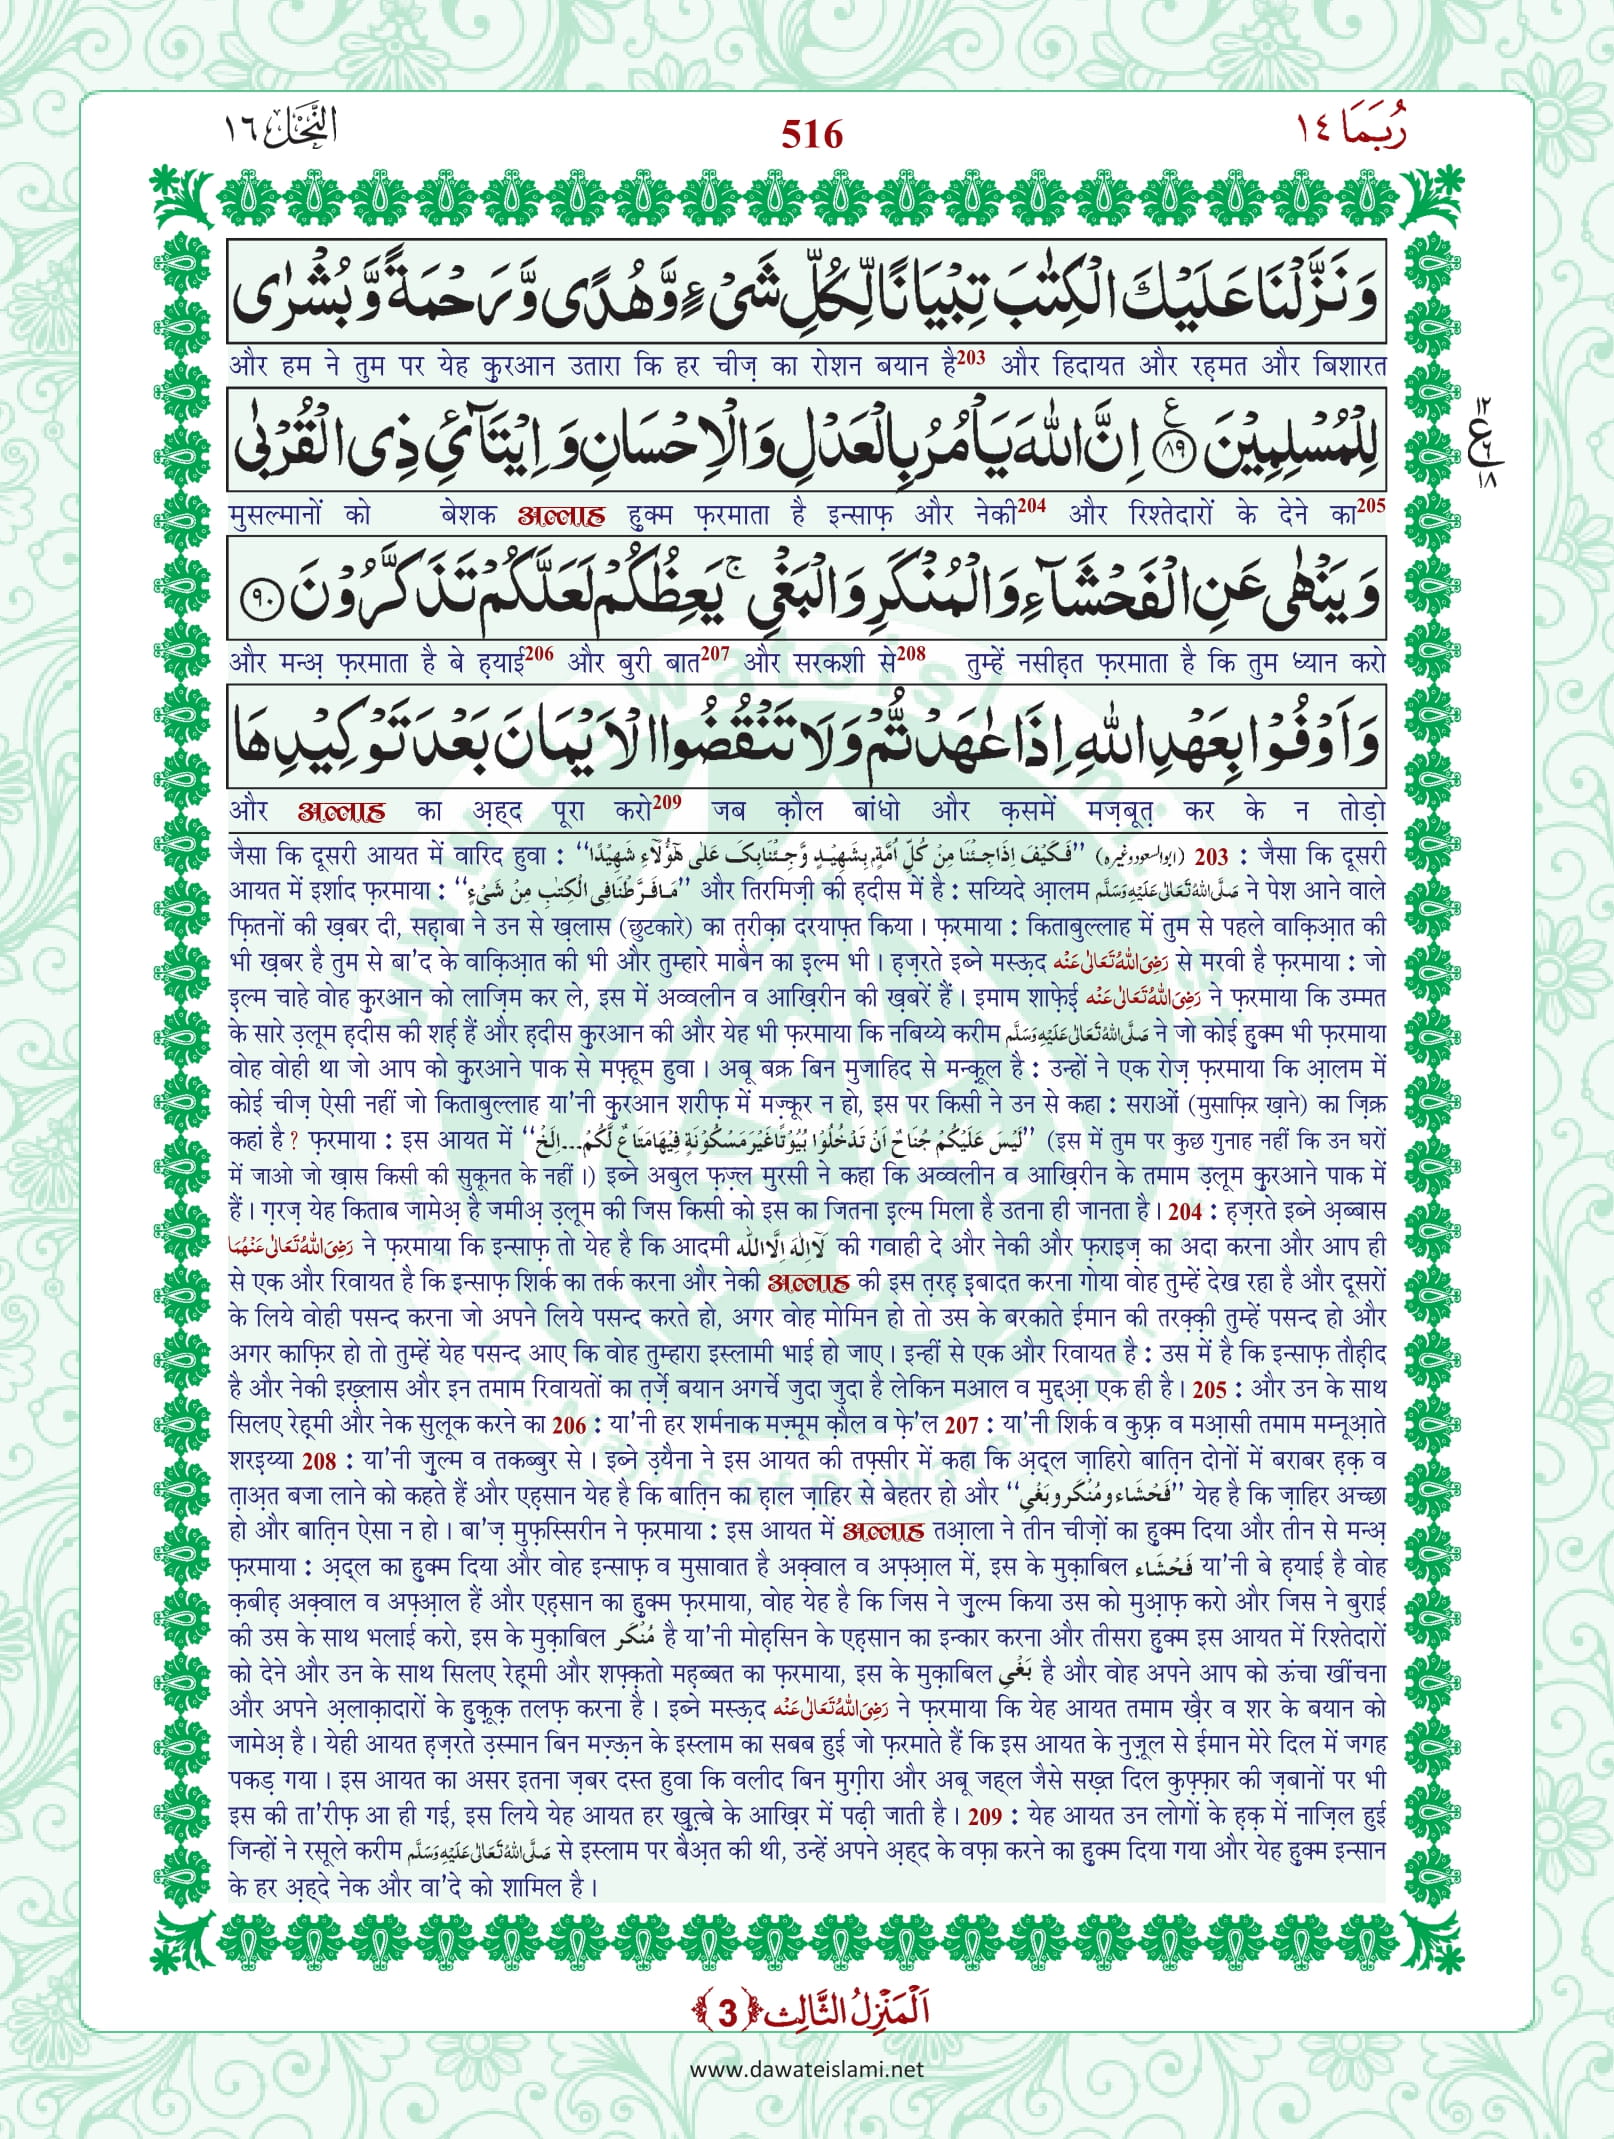 النَّحْل ١٦
516
رُبَمَا ١٤
وَ نَزَّلْنَا عَلَیْكَ الْكِتٰبَ تِبْیَانًا لِّكُلِّ شَیْءٍ وَّ هُدًی وَّ رَحْمَةً وَّ بُشْرٰی
और हम ने तुम पर येह क़ुरआन उतारा कि हर चीज़ का रोशन बयान है203 और हिदायत और रह़मत और बिशारत
لِلْمُسْلِمِیْنَ ﴿۸۹﴾ اِنَّ اللّٰهَ یَاْمُرُ بِالْعَدْلِ وَ الْاِحْسَانِ وَ اِیْتَآئِ ذِی الْقُرْبٰی
मुसल्मानों को बेशक अल्लाह हुक्म फ़रमाता है इन्साफ़ और नेकी204 और रिश्तेदारों के देने का205
وَ یَنْهٰی عَنِ الْفَحْشَآءِ وَ الْمُنْكَرِ وَ الْبَغْیِ ۚ یَعِظُكُمْ لَعَلَّكُمْ تَذَكَّرُوْنَ ﴿۹۰﴾
और मन्अ़ फ़रमाता है बे ह़याई206 और बुरी बात207 और सरकशी से208 तुम्हें नसीह़त फ़रमाता है कि तुम ध्यान करो
وَ اَوْفُوْا بِعَهْدِ اللّٰهِ اِذَا عٰهَدْتُّمْ وَ لَا تَنْقُضُوا الْاَیْمَانَ بَعْدَ تَوْكِیْدِهَا
और अल्लाह का अ़ह्द पूरा करो209 जब क़ौल बांधो और क़समें मज़बूत़ कर के न तोड़ो
जैसा कि दूसरी आयत में वारिद हुवा : “فَكَیْفَ اِذَا جِئْنَا مِنْ كُلِّ اُمَّةٍۭ بِشَهِیْدٍ وَّ جِئْنَا بِكَ عَلٰی هٰۤؤُلَآءِ شَهِیْدًا” (ابوالسعود وغیرہ) 203 : जैसा कि दूसरी
आयत में इर्शाद फ़रमाया : “مَا فَرَّطْنَا فِی الْكِتٰبِ مِنْ شَیْءٍ” और तिरमिज़ी की ह़दीस में है : सय्यिदे आ़लम صَلَّی اللّٰہُ تَعَالٰی عَلَیْہِ وَسَلَّم ने पेश आने वाले
फ़ितनों की ख़बर दी, सह़ाबा ने उन से ख़लास (छुटकारे) का त़रीक़ा दरयाफ़्त किया। फ़रमाया : किताबुल्लाह में तुम से पहले वाक़िआ़त की
भी ख़बर है तुम से बा'द के वाक़िआ़त की भी और तुम्हारे माबैन का इ़ल्म भी। ह़ज़रते इब्ने मस्ऊ़द رَضِیَ اللّٰہُ تَعَالٰی عَنْہ से मरवी है फ़रमाया : जो
इ़ल्म चाहे वोह क़ुरआन को लाज़िम कर ले, इस में अव्वलीन व आख़िरीन की ख़बरें हैं। इमाम शाफ़ेई़ رَضِیَ اللّٰہُ تَعَالٰی عَنْہ ने फ़रमाया कि उम्मत
के सारे उ़लूम ह़दीस की शर्ह़ हैं और ह़दीस क़ुरआन की और येह भी फ़रमाया कि नबिय्ये करीम صَلَّی اللّٰہُ تَعَالٰی عَلَیْہِ وَسَلَّم ने जो कोई हुक्म भी फ़रमाया
वोह वोही था जो आप को क़ुरआने पाक से मफ़्हूम हुवा। अबू बक्र बिन मुजाहिद से मन्क़ूल है : उन्हों ने एक रोज़ फ़रमाया कि आ़लम में
कोई चीज़ ऐसी नहीं जो किताबुल्लाह या'नी क़ुरआन शरीफ़ में मज़्कूर न हो, इस पर किसी ने उन से कहा : सराओं (मुसाफ़िर ख़ाने) का ज़िक्र
कहां है? फ़रमाया : इस आयत में “لَیْسَ عَلَیْكُمْ جُنَاحٌ اَنْ تَدْخُلُوْا بُیُوْتًا غَیْرَ مَسْكُوْنَةٍ فِیْهَا مَتَاعٌ لَّكُمْ...اِلَخ” (इस में तुम पर कुछ गुनाह नहीं कि उन घरों
में जाओ जो ख़ास किसी की सुकूनत के नहीं।) इब्ने अबुल फ़ज़्ल मुरसी ने कहा कि अव्वलीन व आख़िरीन के तमाम उ़लूम क़ुरआने पाक में
हैं। ग़रज़ येह किताब जामेअ़ है जमीअ़ उ़लूम की जिस किसी को इस का जितना इ़ल्म मिला है उतना ही जानता है। 204 : ह़ज़रते इब्ने अ़ब्बास
رَضِیَ اللّٰہُ تَعَالٰی عَنْہُمَا ने फ़रमाया कि इन्साफ़ तो येह है कि आदमी لَآ اِلٰهَ اِلَّا اللّٰه की गवाही दे और नेकी और फ़राइज़ का अदा करना और आप ही
से एक और रिवायत है कि इन्साफ़ शिर्क का तर्क करना और नेकी अल्लाह की इस त़रह़ इ़बादत करना गोया वोह तुम्हें देख रहा है और दूसरों
के लिये वोही पसन्द करना जो अपने लिये पसन्द करते हो, अगर वोह मोमिन हो तो उस के बरकाते ईमान की तरक़्क़ी तुम्हें पसन्द हो और
अगर काफ़िर हो तो तुम्हें येह पसन्द आए कि वोह तुम्हारा इस्लामी भाई हो जाए। इन्हीं से एक और रिवायत है : उस में है कि इन्साफ़ तौह़ीद
है और नेकी इख़्लास और इन तमाम रिवायतों का त़र्ज़े बयान अगर्चे जुदा जुदा है लेकिन मआल व मुद्दआ़ एक ही है। 205 : और उन के साथ
सिलए रेह़्मी और नेक सुलूक करने का 206 : या'नी हर शर्मनाक मज़्मूम क़ौल व फ़े'ल 207 : या'नी शिर्क व कुफ़्र व मआ़सी तमाम मम्नूआ़ते
शरइ़य्या 208 : या'नी ज़ुल्म व तकब्बुर से। इब्ने उ़यैना ने इस आयत की तफ़्सीर में कहा कि अ़द्ल ज़ाहिरो बात़िन दोनों में बराबर ह़क़ व
त़ाअ़त बजा लाने को कहते हैं और एह़सान येह है कि बात़िन का ह़ाल ज़ाहिर से बेहतर हो और “فَحْشَاء و مُنْكَر و بَغْی” येह है कि ज़ाहिर अच्छा
हो और बात़िन ऐसा न हो। बा'ज़ मुफ़स्सिरीन ने फ़रमाया : इस आयत में अल्लाह तआ़ला ने तीन चीज़ों का हुक्म दिया और तीन से मन्अ़
फ़रमाया : अ़द्ल का हुक्म दिया और वोह इन्साफ़ व मुसावात है अक़्वाल व अफ़्आ़ल में, इस के मुक़ाबिल فَحْشَاء या'नी बे ह़याई है वोह
क़बीह़ अक़्वाल व अफ़्आ़ल हैं और एह़सान का हुक्म फ़रमाया, वोह येह है कि जिस ने ज़ुल्म किया उस को मुआ़फ़ करो और जिस ने बुराई
की उस के साथ भलाई करो, इस के मुक़ाबिल مُنْكَر है या'नी मोह़सिन के एह़सान का इन्कार करना और तीसरा हुक्म इस आयत में रिश्तेदारों
को देने और उन के साथ सिलए रेह़्मी और शफ़्क़तो मह़ब्बत का फ़रमाया, इस के मुक़ाबिल بَغْی है और वोह अपने आप को ऊंचा खींचना
और अपने अ़लाक़ादारों के ह़ुक़ूक़ तलफ़ करना है। इब्ने मस्ऊ़द رَضِیَ اللّٰہُ تَعَالٰی عَنْہ ने फ़रमाया कि येह आयत तमाम ख़ैर व शर के बयान को
जामेअ़ है। येही आयत ह़ज़रते उ़स्मान बिन मज़्ऊ़न के इस्लाम का सबब हुई जो फ़रमाते हैं कि इस आयत के नुज़ूल से ईमान मेरे दिल में जगह
पकड़ गया। इस आयत का असर इतना ज़बर दस्त हुवा कि वलीद बिन मुग़ीरा और अबू जह्ल जैसे सख़्त दिल कुफ़्फ़ार की ज़बानों पर भी
इस की ता'रीफ़ आ ही गई, इस लिये येह आयत हर ख़ुत़्बे के आख़िर में पढ़ी जाती है। 209 : येह आयत उन लोगों के ह़क़ में नाज़िल हुई
जिन्हों ने रसूले करीम صَلَّی اللّٰہُ تَعَالٰی عَلَیْہِ وَسَلَّم से इस्लाम पर बैअ़त की थी, उन्हें अपने अ़ह्द के वफ़ा करने का हुक्म दिया गया और येह हुक्म इन्सान
के हर अ़ह्दे नेक और वा'दे को शामिल है।
اَلْمَنْزِلُ الثَّالِث ﴿3﴾
www.dawateislami.net